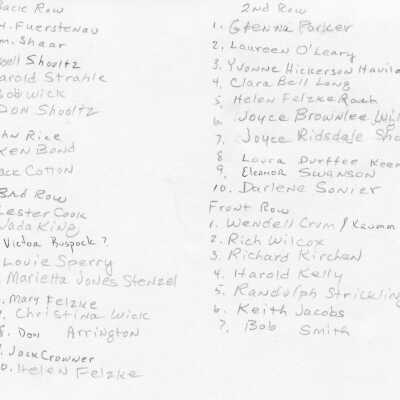 Back Row
H. Fuerstenau
M. Shaar
Shooltz
Harold Strahle
Bob Wick
Don Shooltz
Rice
Ken Bond
Jack Cotton
3rd Row
Lester Cook
Wada King
Victor Buspock?
Louie Sperry
Marietta Jones Stenzel
Mary Felzke
Christina Wick
8. Don Arrington
Jack Crowner
10. Helen Felzke
2nd Row
1. Glenna Parker
2. Laureen O'Leary
3. Yvonne Hickerson
4. Clara Bell Long
5. Helen Felzke Rauh
6. Joyce Brownlee
7. Joyce Ridsdale
8. Laura Durffee
9. Eleanor Swanson
10. Darlene Sonier
Front Row
1. Wendell Crum /
2. Rich Wilcox
3. Richard Kirchen
4. Harold Kelly
5. Randulph
6. Keith Jacobs
7. Bob Smith